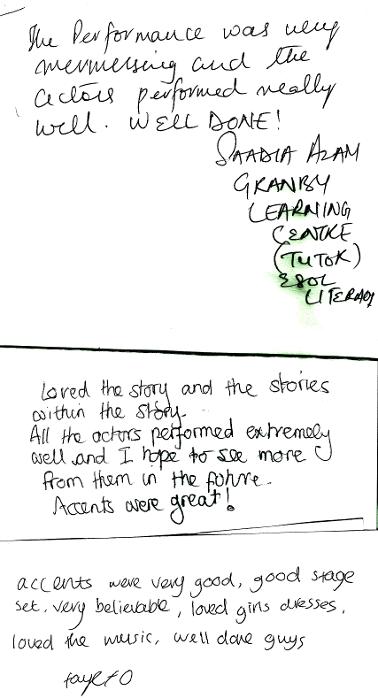 The Performance was very
mermersing and the
actors performed really
well. WELL DONE!
SAADIA AZAM
GRANBY
LEARNING
CENTRE
(TUTOR)
ESOL
LITERACY
Loved the story and the stories
within the story.
All the actors performed extremely
well and I hope to see more
from them in the future.
Accents were great!
accents were very good, good stage
set, very believable, loved girls dresses,
loved the music, well done guys